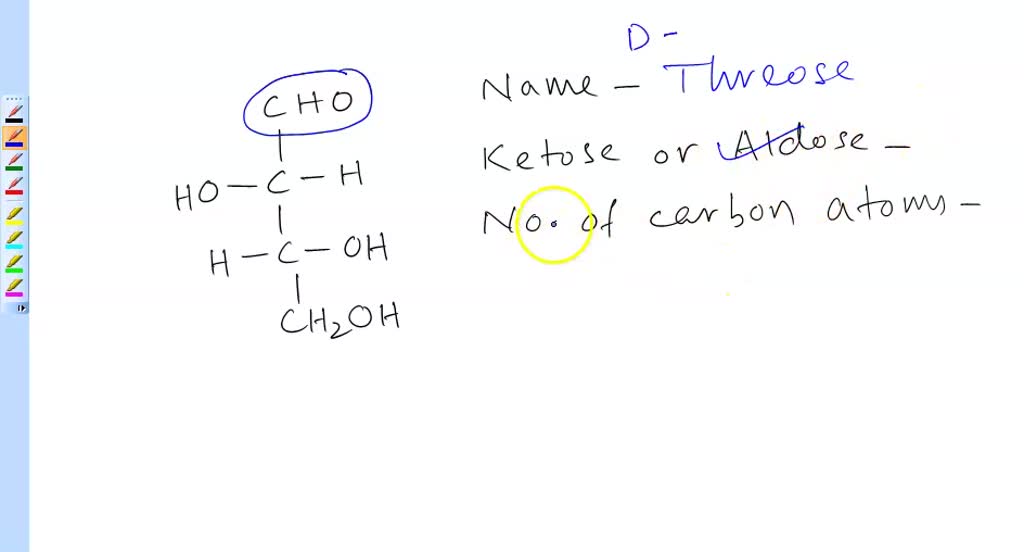 D-
Name - Threose
CHO
Ketose or Aldose -
HO-C-H
No. of carbon atoms -
H-C-OH
CH₂OH